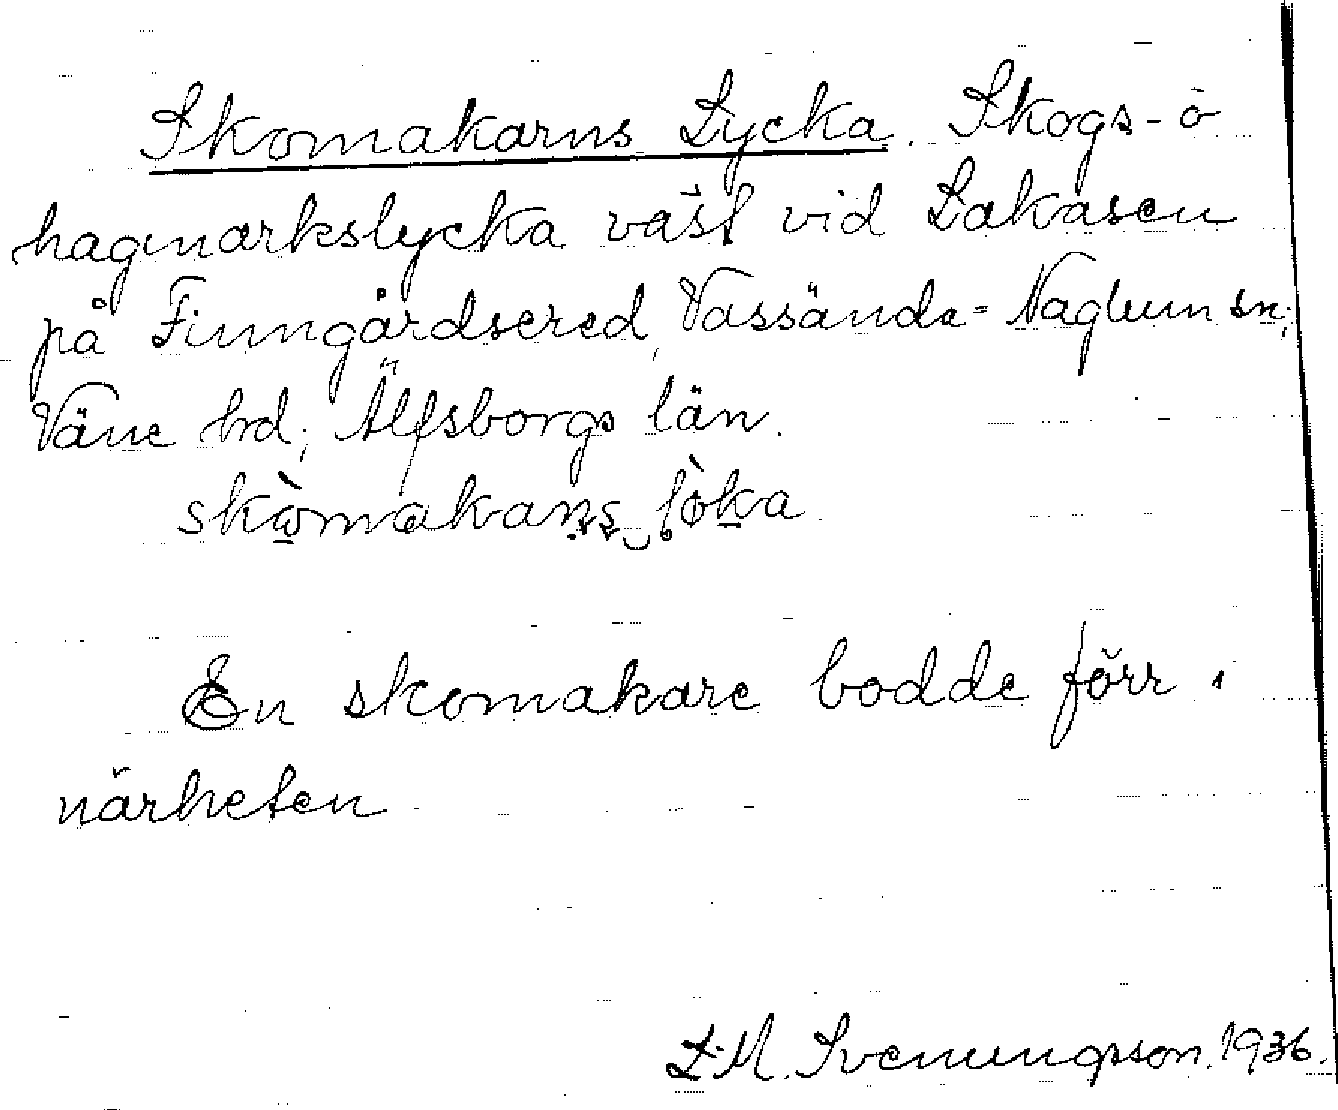 Skomakarns Lycka. Skogs- o
hagmarkslycka väst vid Lakasen
på Finngårdsered, Vassända-Naglum sn;
Väne hd; Älfsborgs län.
skòmakans lòka
En skomakare bodde förr i
närheten
L.M. Svenungsson. 1936.